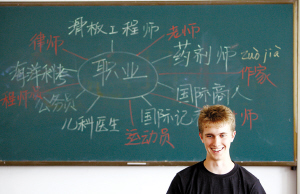 看板工程师
律师
老师
药剂师 zuò jiā
有洋利考
职业
作家
程师
公务员
国际商人
国际记 师
儿科医生
运动员